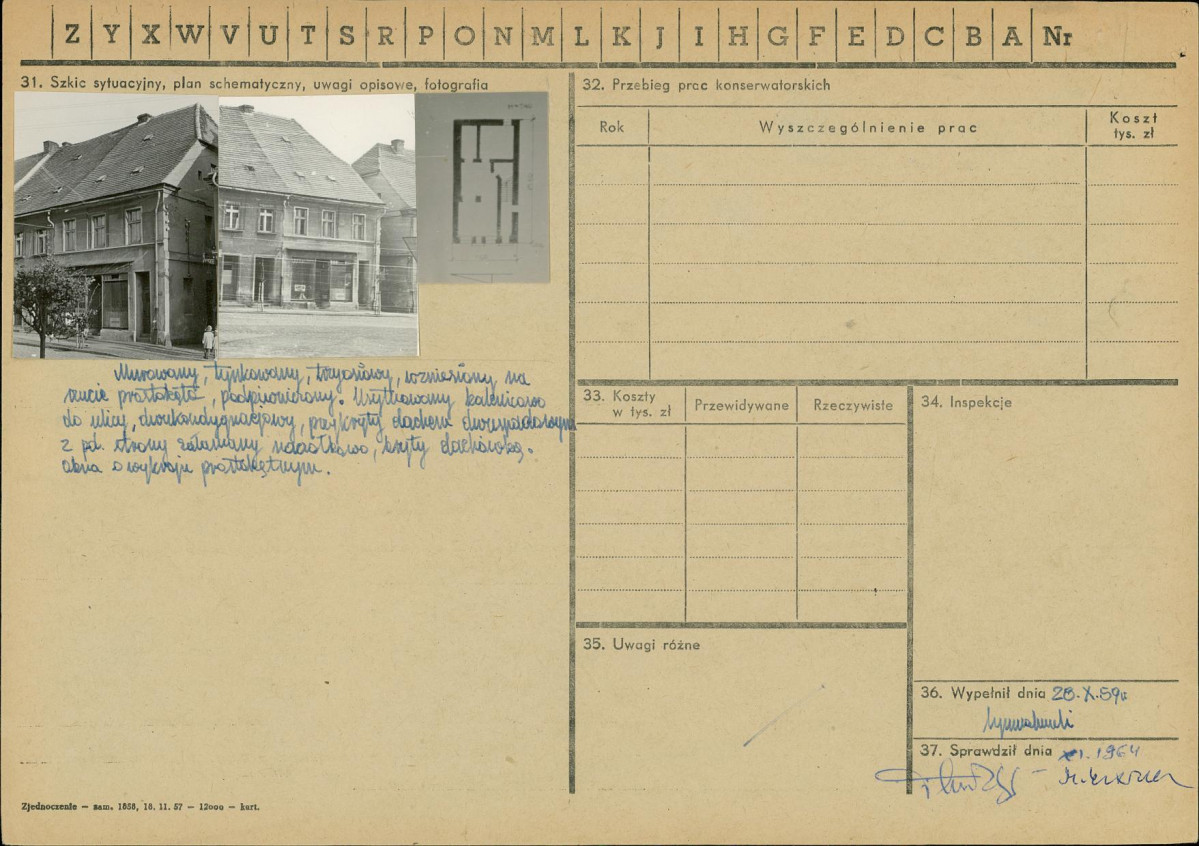 Z Y X W V U T S R P O N M L K J I H G F E D C B A Nr
31. Szkic sytuacyjny, plan schematyczny, uwagi opisowe, fotografia
Murowany, tynkowany, trzyosiowy, wzniesiony na
rzucie prostokąta, podpiwniczony. Usytuowany kalenicowo
do ulicy, dwukondygnacyjowy, przykryty dachem dwuspadowym
z pd. strony załamany naczółkowo, kryty dachówką.
okna o wykroju prostokątnym.
Zjednoczenie – zam. 1858, 18. 11. 57 – 12000 – kart.
32. Przebieg prac konserwatorskich
Rok
Wyszczególnienie prac
Koszt
tys. zł
33. Koszty
w tys. zł
Przewidywane
Rzeczywiste
34. Inspekcje
35. Uwagi różne
36. Wypełnił dnia 28.X.59r
37. Sprawdził dnia XI.1964